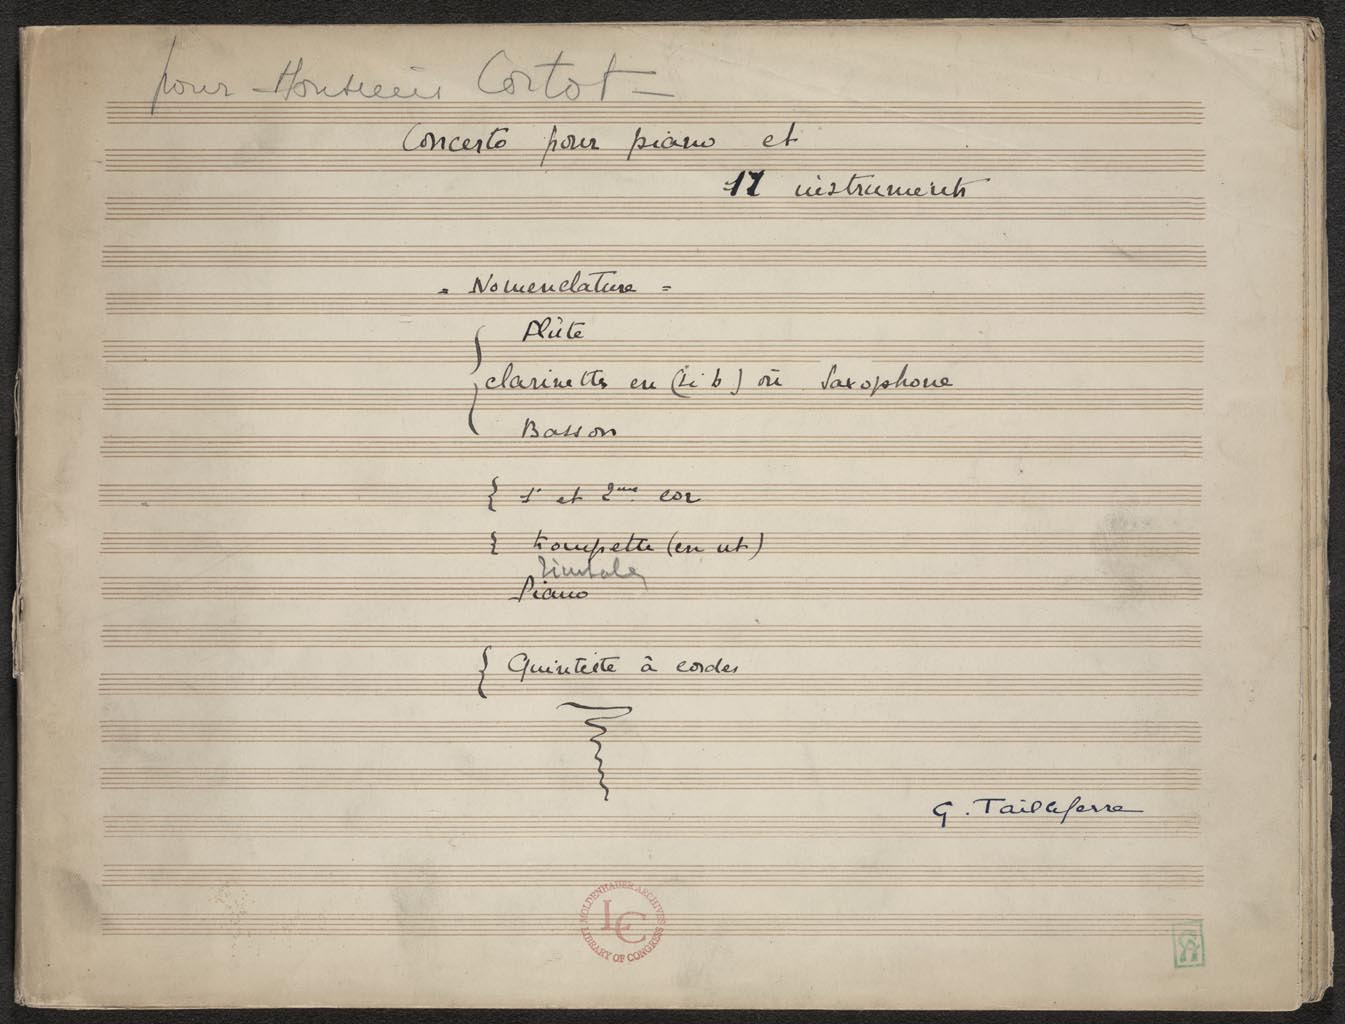 pour Monsieur Cortot —
Concerto pour piano et
17 instruments
- Nomenclature =
Flûte
clarinettes en (si b) où Saxophone
Basson
1r et 2me cor
trompette (en ut)
Timbales
Piano
Quintette à cordes
G. Tailleferre
MOLDENHAUER ARCHIVES
LC
LIBRARY OF CONGRESS